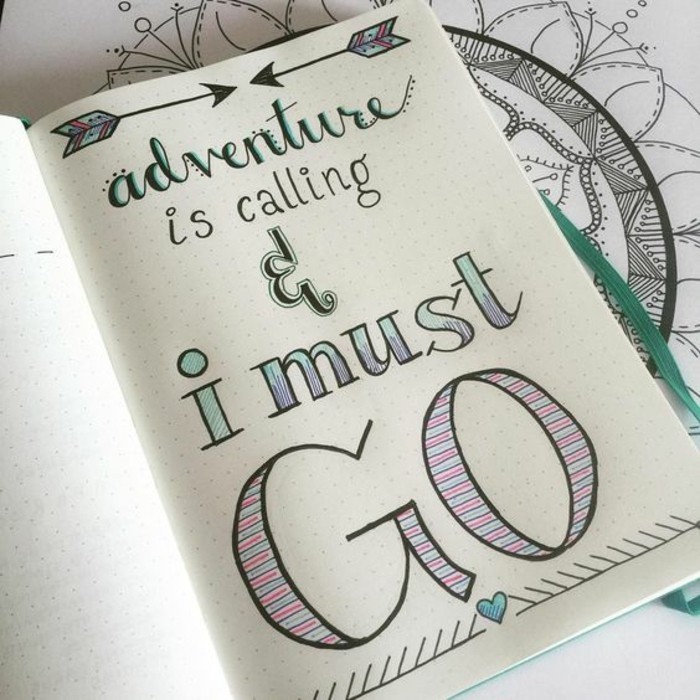 adventure
is calling
&
i must
GO